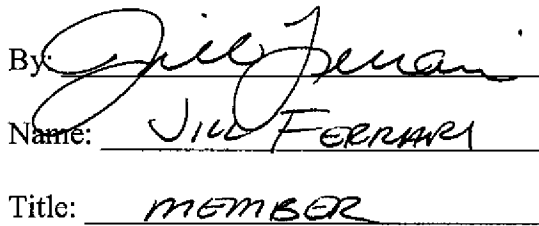 By: Jill Ferrari
Name: JILL FERRARI
Title: MEMBER